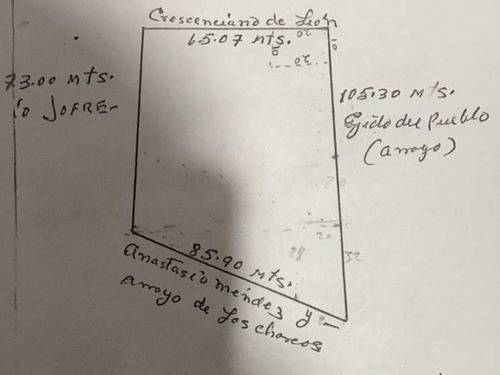 Crescenciano de León
65.07 mts.
20
10
20
73.00 mts.
io JOFRE-
105.30 mts.
Ejido del Pueblo
(arroyo)
20
28
32
85.90 mts.
Anastasio Méndez y
arroyo de los charcos